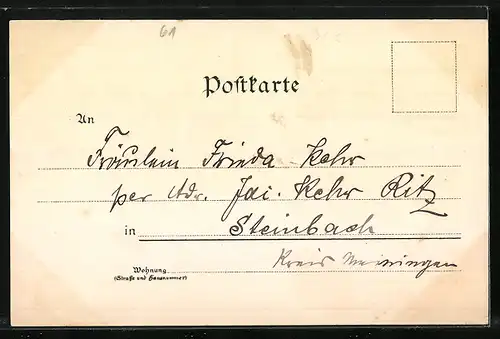 61
Postkarte
An
Fräulein Frieda Kehr
per Adr. Kehr Ritz
in Steinbach
Kreis Meiningen
Wohnung
(Straße und Hausnummer)